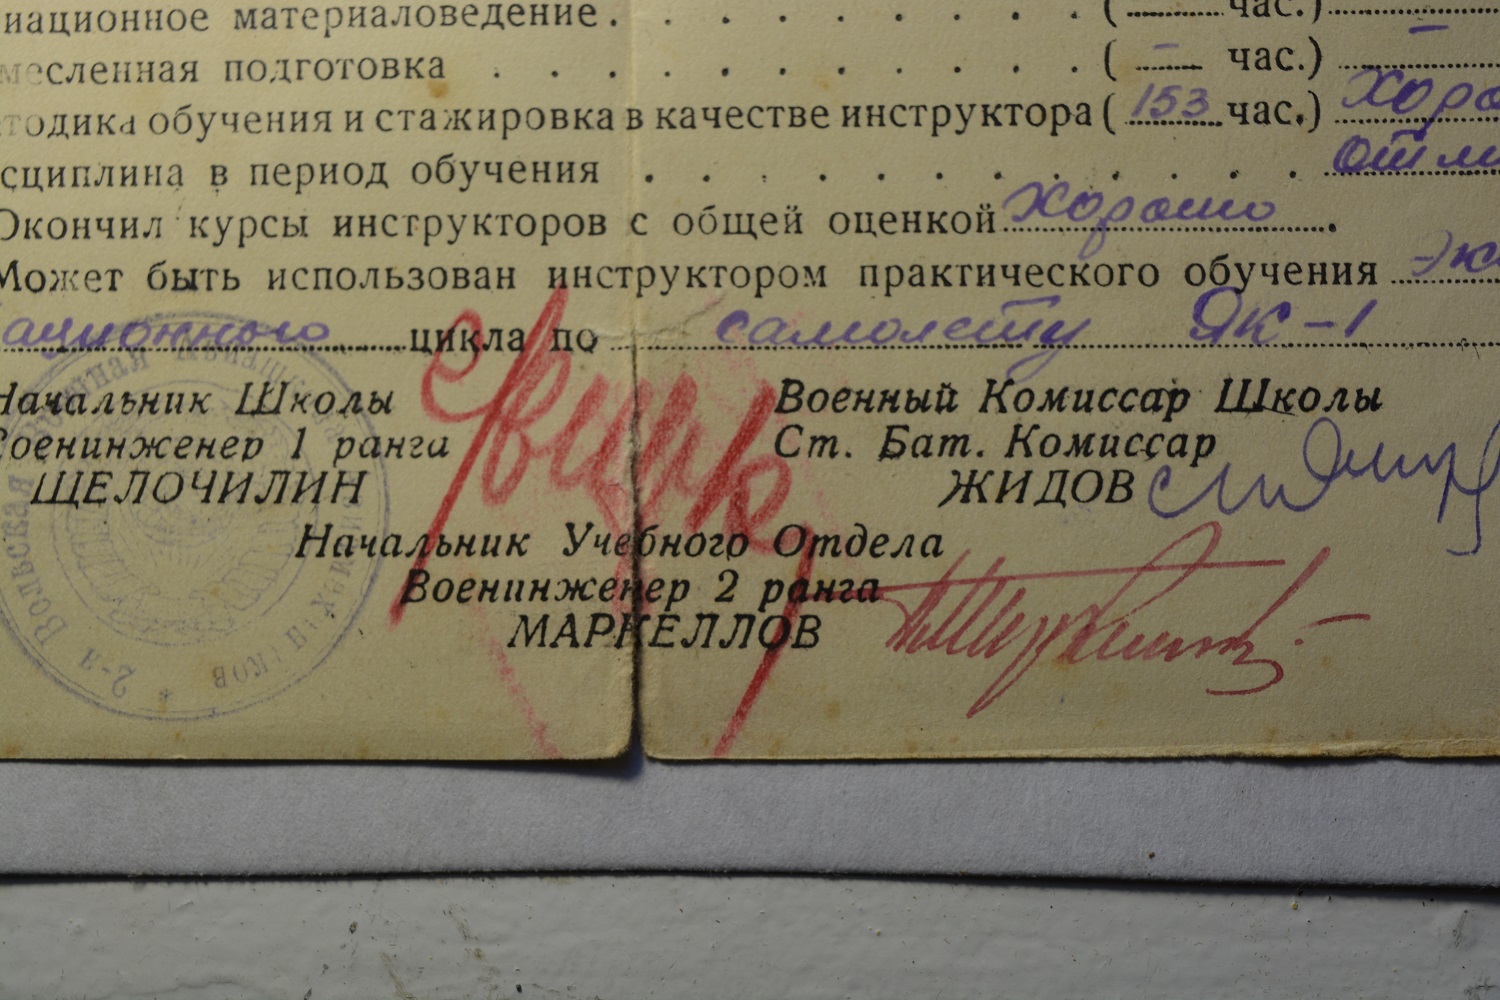 иационное материаловедение. . . . . . . . . ( ........ час.) ........
месленная подготовка . . . . . . . . . . . ( – час.) –
тодика обучения и стажировка в качестве инструктора ( 153 час.) Хоро
сциплина в период обучения . . . . . . . . . . . отли
Окончил курсы инструкторов с общей оценкой Хорошо.
Может быть использован инструктором практического обучения экс
ационного цикла по самолету Як-1
Начальник Школы
Военинженер 1 ранга
ЩЕЛОЧИЛИН
Военный Комиссар Школы
Ст. Бат. Комиссар
ЖИДОВ
Начальник Учебного Отдела
Военинженер 2 ранга
МАРКЕЛЛОВ
2-я Вольская военная